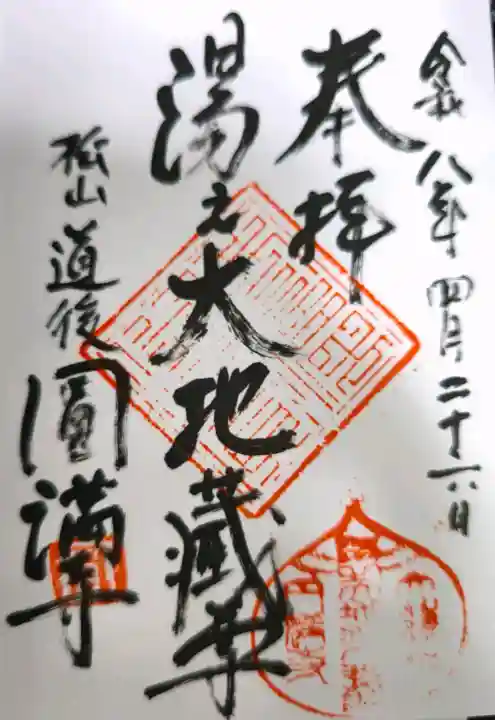 令和八年四月二十六日
奉拝
湯之大地蔵尊
松山道後
圓満寺